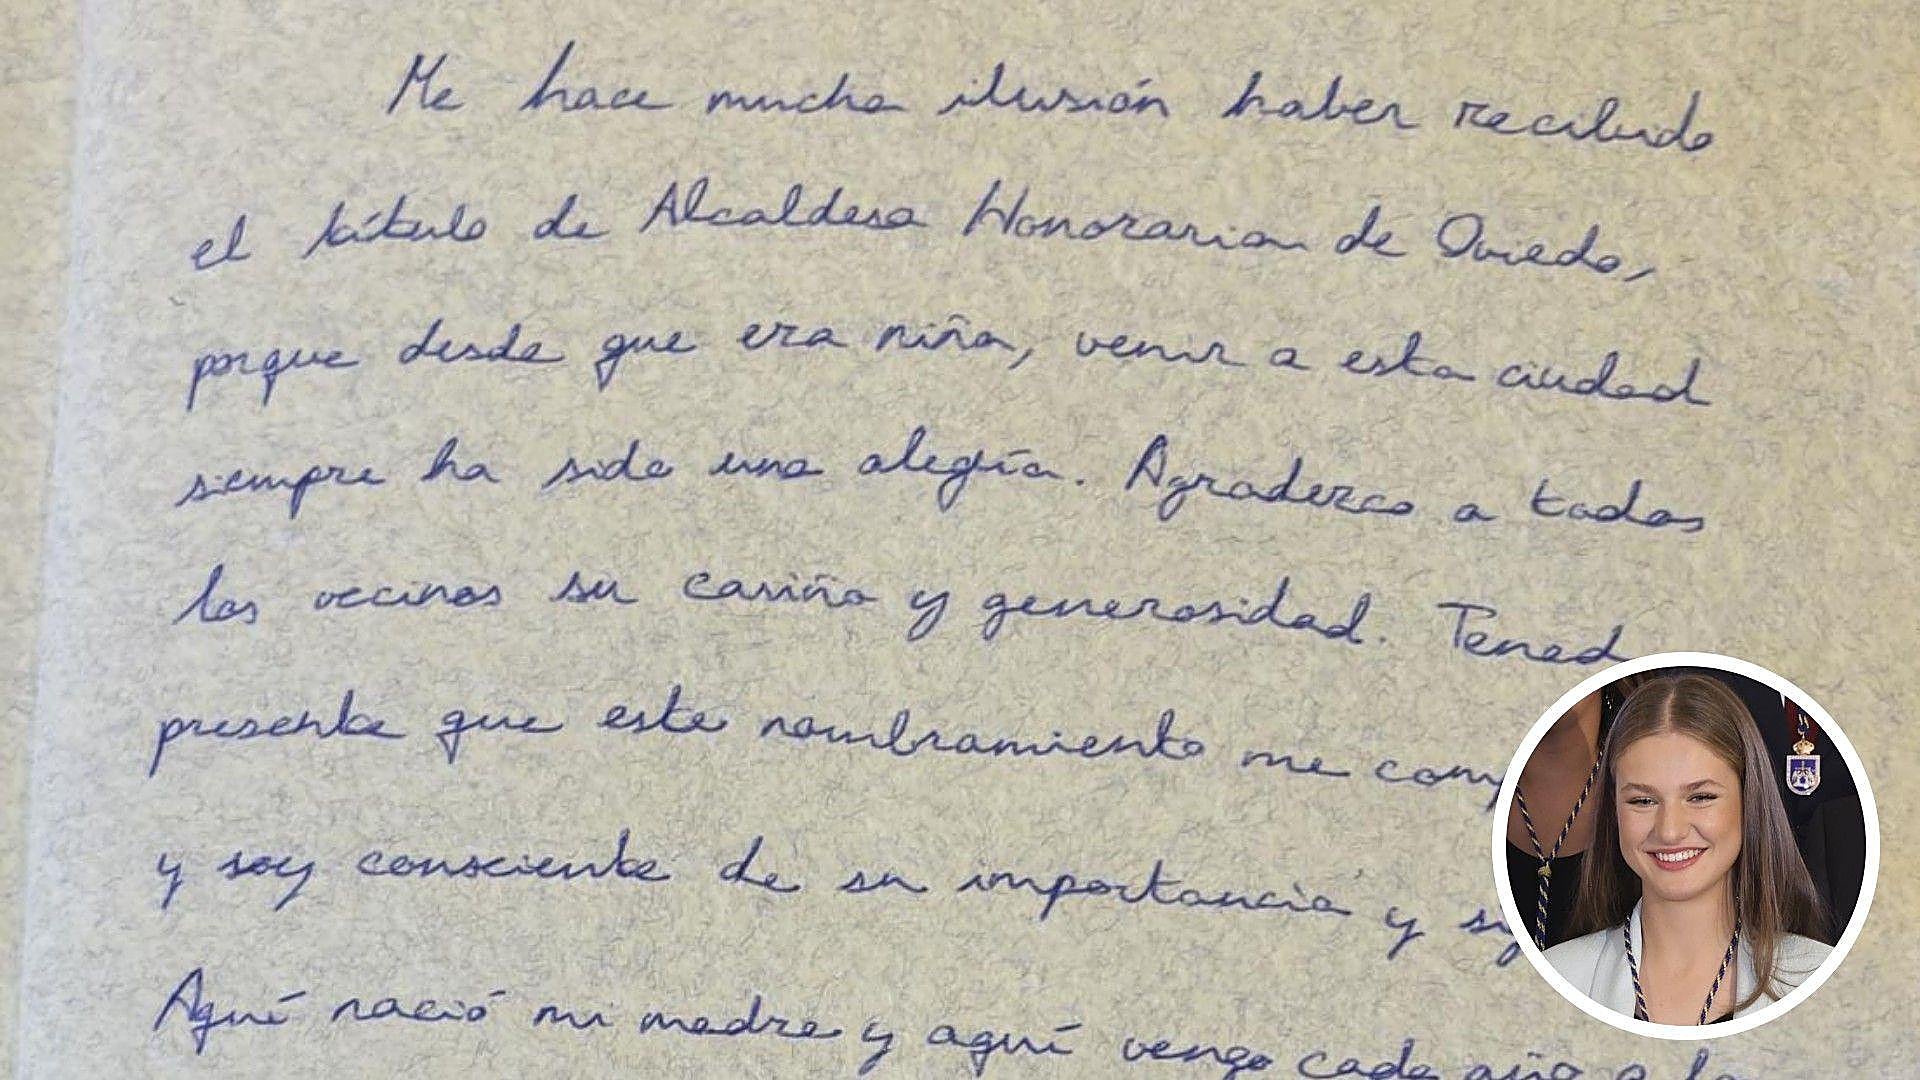 Me hace mucha ilusión haber recibido
el título de Alcaldesa Honoraria de Oviedo,
porque desde que era niña, venir a esta ciudad
siempre ha sido una alegría. Agradezco a todos
los vecinos su cariño y generosidad. Tened
presente que este nombramiento me
y soy consciente de su importancia y
Aquí nació mi madre y aquí vengo cada año a